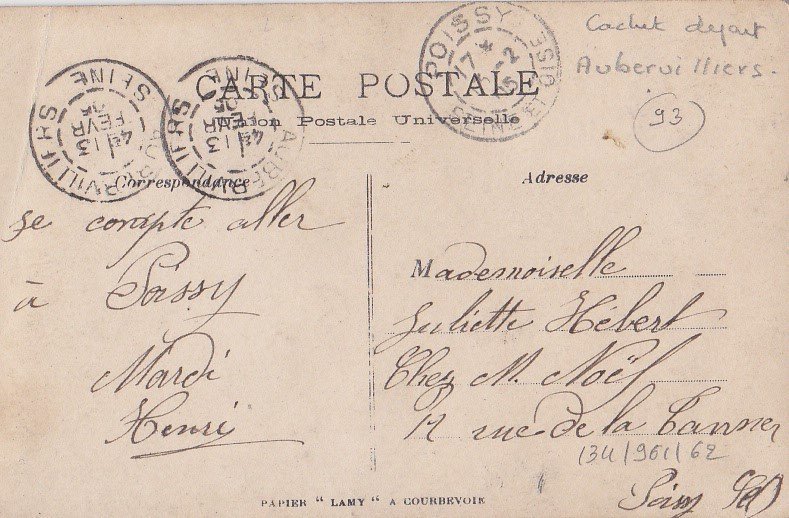 Cachet depart
Aubervilliers.
93
CARTE POSTALE
Union Postale Universelle
AUBERVILLIERS
SEINE
13
FEVR
05
AUBERVILLIERS
SEINE
13
FEVR
05
POISSY
SEINE ET OISE
Correspondance
Adresse
Je compte aller
à Poissy
Mardi
Henri
Mademoiselle
Juliette Hébert
Chez M. Noël
rue de la Tanner
134/961/62
Poissy
PAPIER "LAMY" A COURBEVOIE